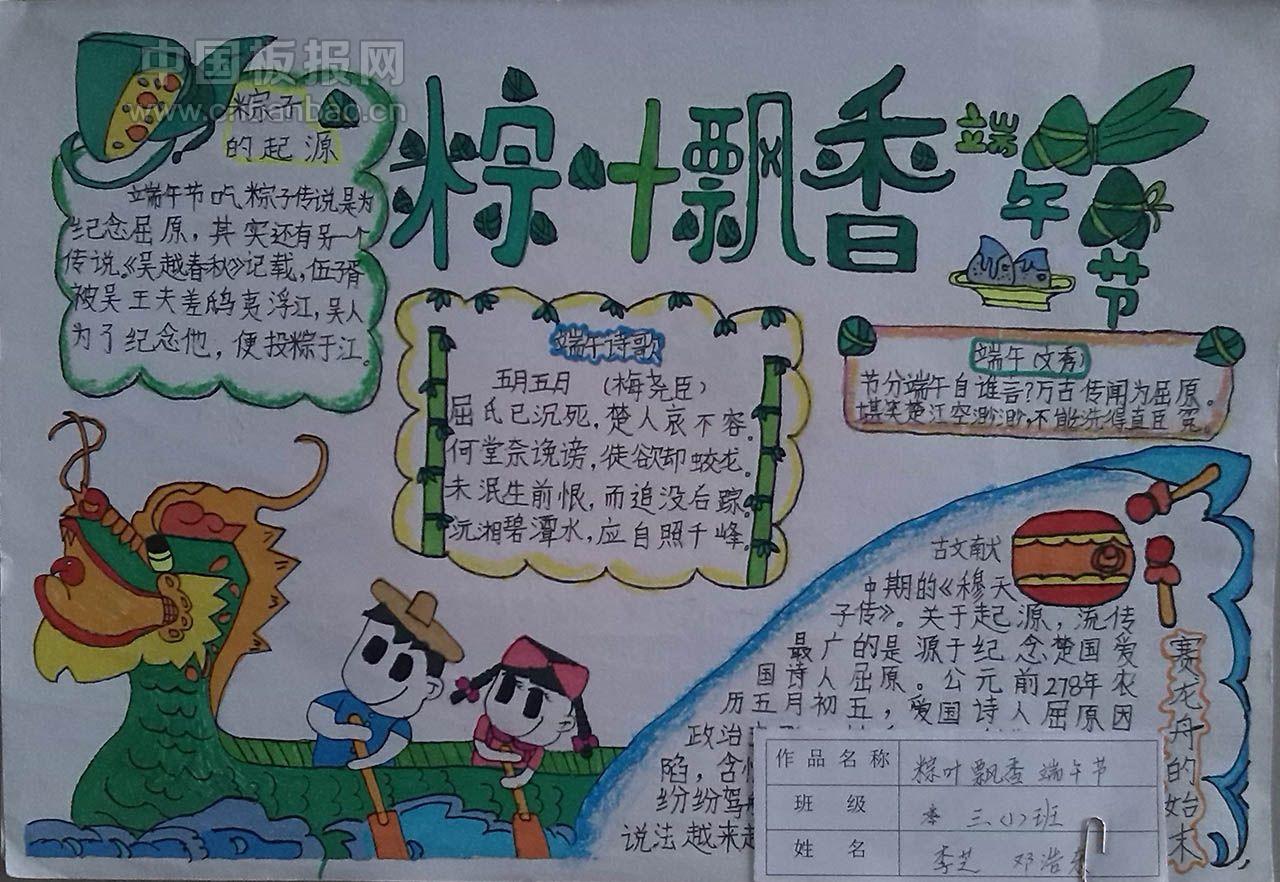 中国板报网
www.chianbao.cn
粽叶飘香
端午节
粽子
的起源
端午节吃粽子传说是为
纪念屈原，其实还有另一个
传说。《吴越春秋》记载，伍子胥
被吴王夫差鸱夷浮江，吴人
为了纪念他，便投粽于江。
端午诗歌
五月五日 （梅尧臣）
屈氏已沉死，楚人哀不容。
何堂奈谗谤，徒欲却蛟龙。
未泯生前恨，而追没后踪。
沅湘碧潭水，应自照千峰。
端午（文秀）
节分端午自谁言？万古传闻为屈原。
堪笑楚江空渺渺，不能洗得直臣冤。
赛龙舟的始末
古文献
中期的《穆天
子传》。关于起源，流传
最广的是源于纪念楚国爱
国诗人屈原。公元前278年农
历五月初五，爱国诗人屈原因
政治
陷，含
纷纷驾
说法越来
作品名称 粽叶飘香 端午节
班级 三（1）班
姓名 李芝 邓浩